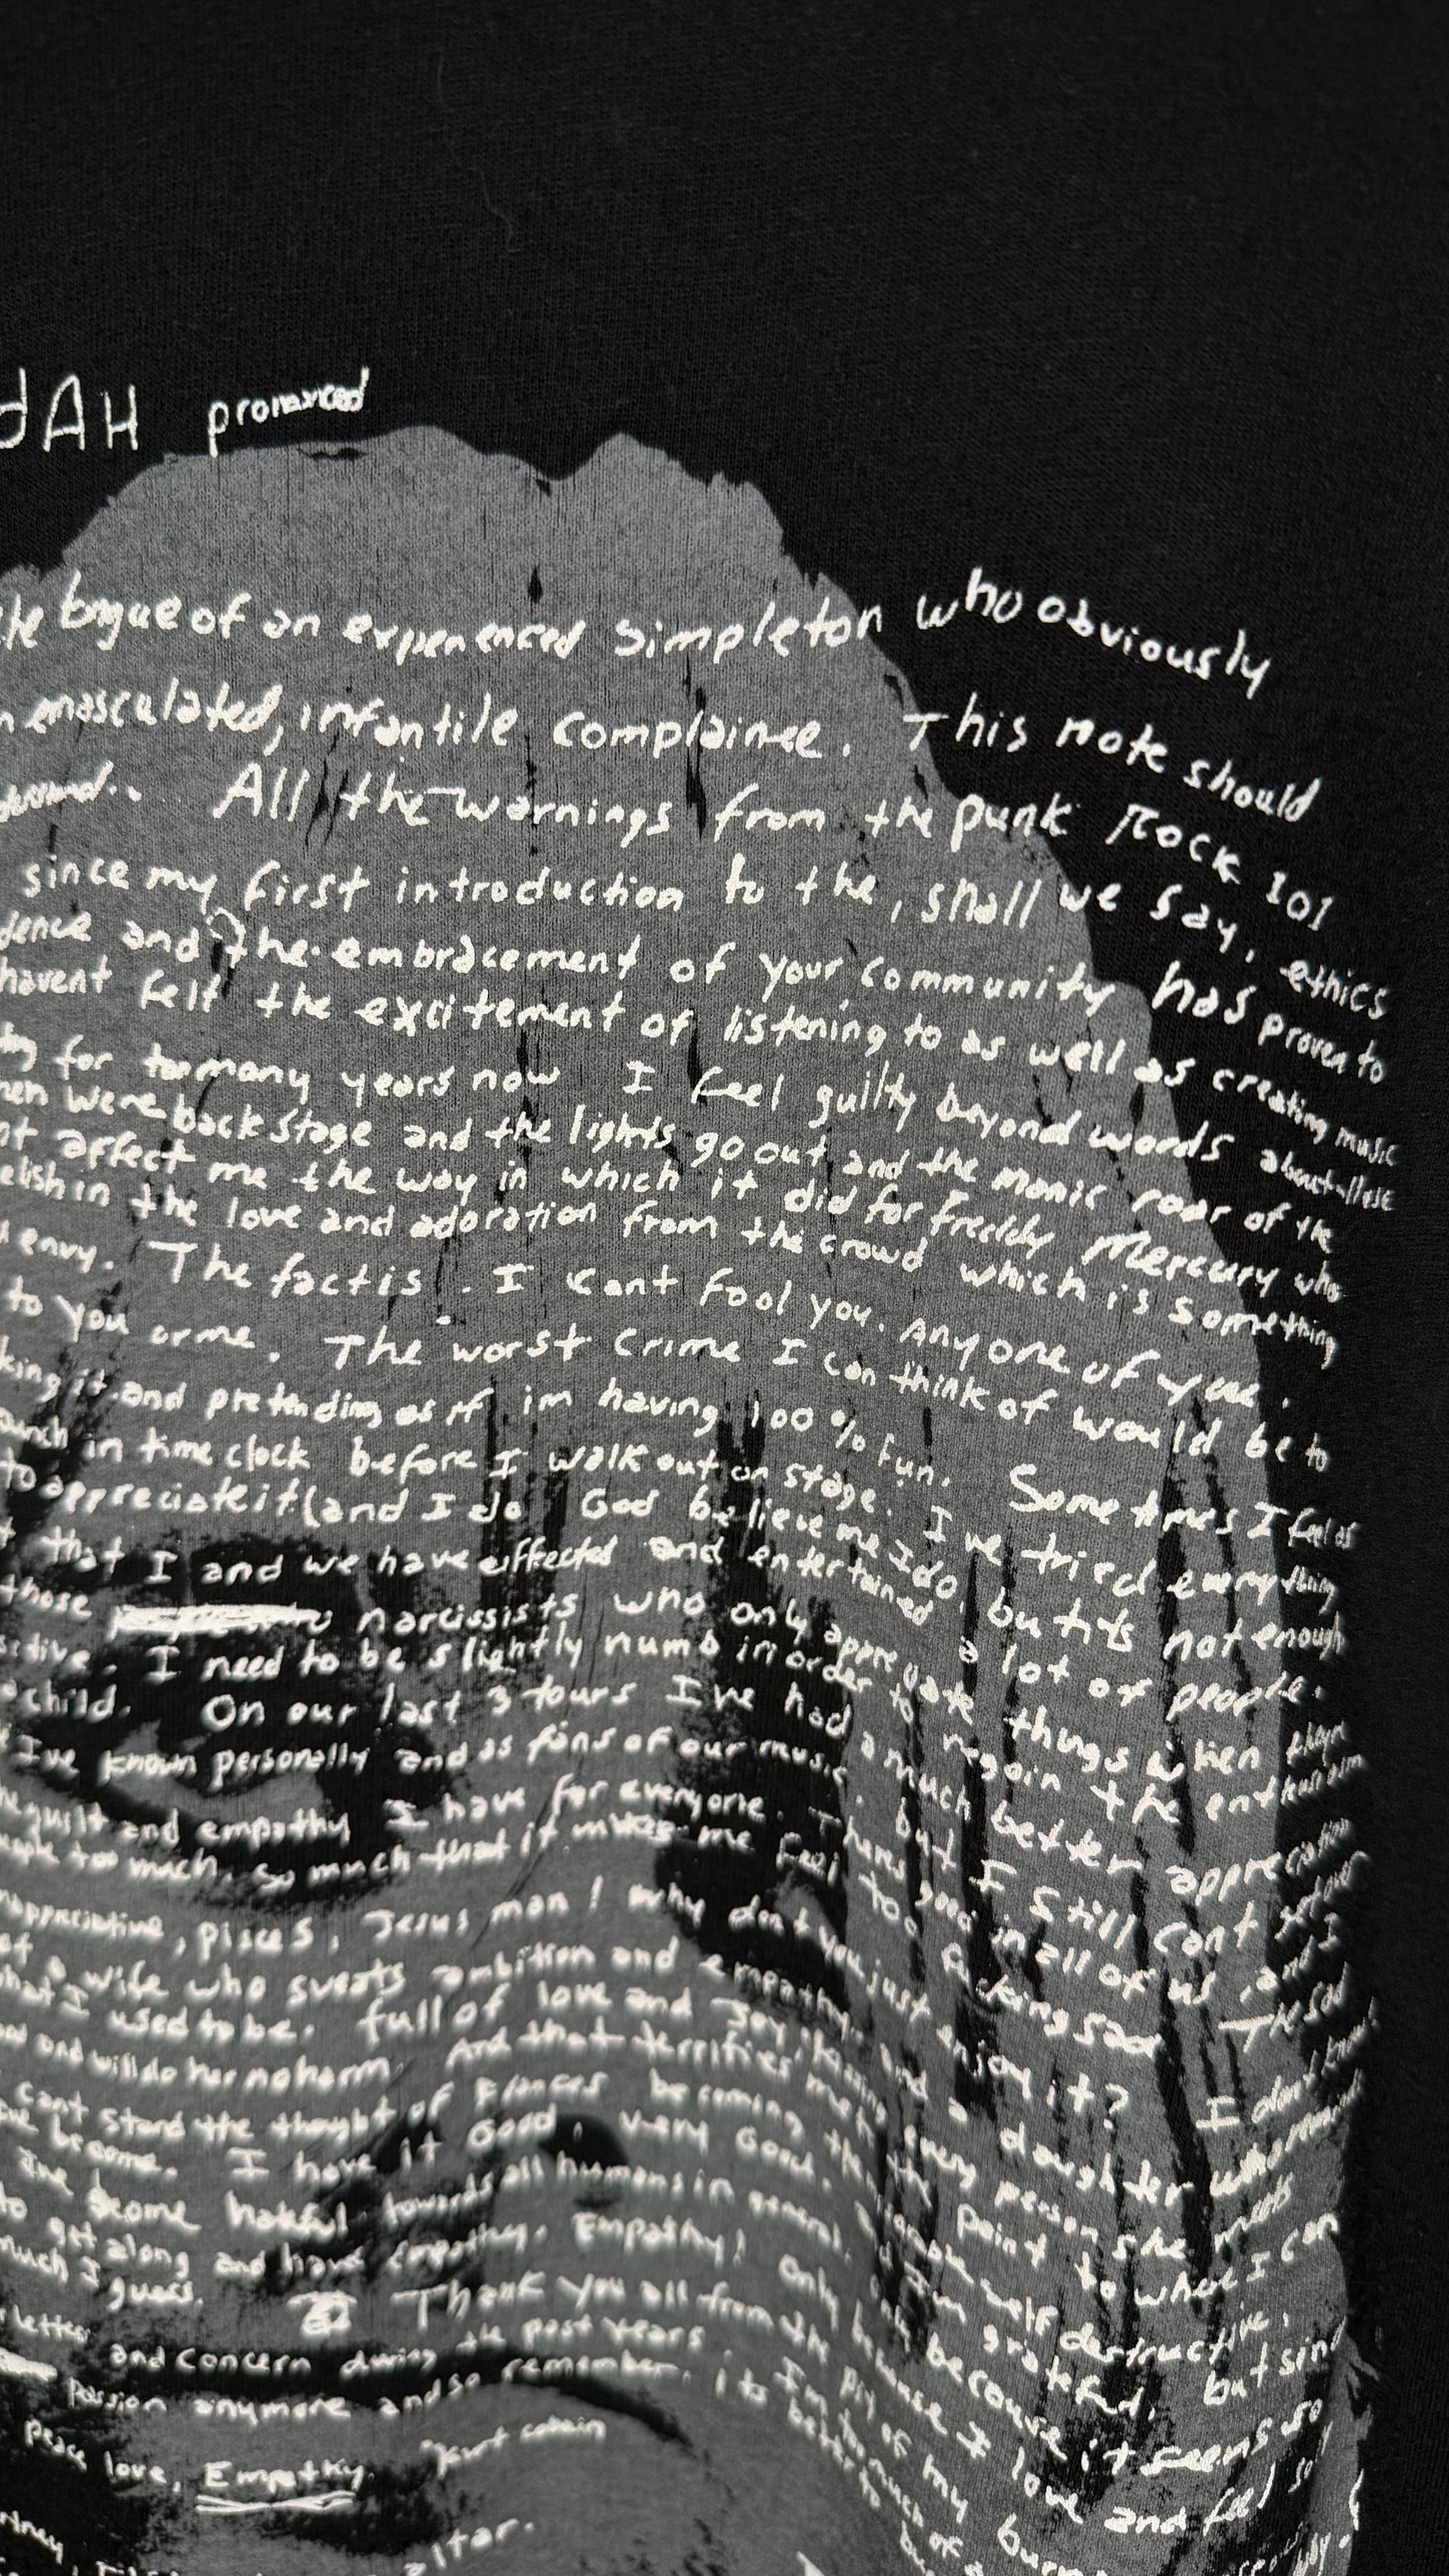 dAH pronounced
tongue of an experienced simpleton who obviously
emasculated, infantile complainee. This note should
All the warnings from the punk Rock 101
since my first introduction to the, shall we say, ethics
and the embracement of your community has proven to
havent felt the excitement of listening to as well as creating music
for too many years now I feel guilty beyond words about these
were back stage and the lights go out and the manic roar of the
affect me the way in which it did for freddy Mercury who
in the love and adoration from the crowd which is something
envy. The fact is. I cant fool you. Any one of you.
to you or me. The worst crime I can think of would be to
it and pretending as if im having 100 % fun. Sometimes I feel as
in time clock before I walk out on stage. I've tried everything
to appreciate it (and I do God believe me I do, but its not enough
that I and we have affected and entertained a lot of people.
those narcissists who only appreciate things when theyre
I need to be slightly numb in order to regain the enthusiasm
child. On our last 3 tours I've had a much better appreciation
I've known personally and as fans of our music, but I still cant
guilt and empathy I have for everyone. Theres good in all of us, and I
too much. so much that it makes me feel too fucking sad The sad
appreciative, pisces, Jesus man! why dont you just enjoy it? I dont know!
a wife who sweats ambition and empathy and a daughter who
I used to be. full of love and joy every person she meets
and will do her no harm. And that terrifies me to the point to where I can
cant stand the thought of Frances becoming the self destructive,
become. I have it Good, very Good. Im grateful, but
become hateful towards all humans in general. Only because it seems so
to get along and have empathy. Empathy! because I love and feel so
much I guess. Thank you all from the pit of my
letters and concern during the past years. Im too much of
passion anymore and so remember, its better to
Peace love, Empathy. Kurt cobain
altar.